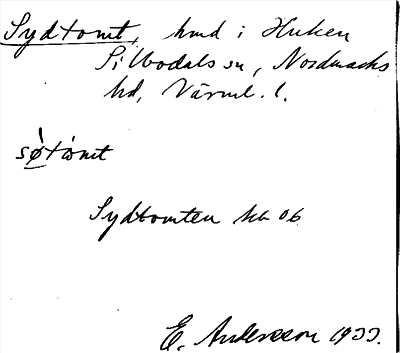 Sydtomt, hmd i Huken
Silbodals sn, Nordmarks
hd, Värml. l.
sø̀tòmt
Sydtomten kb 06
E. Andersson 1933.